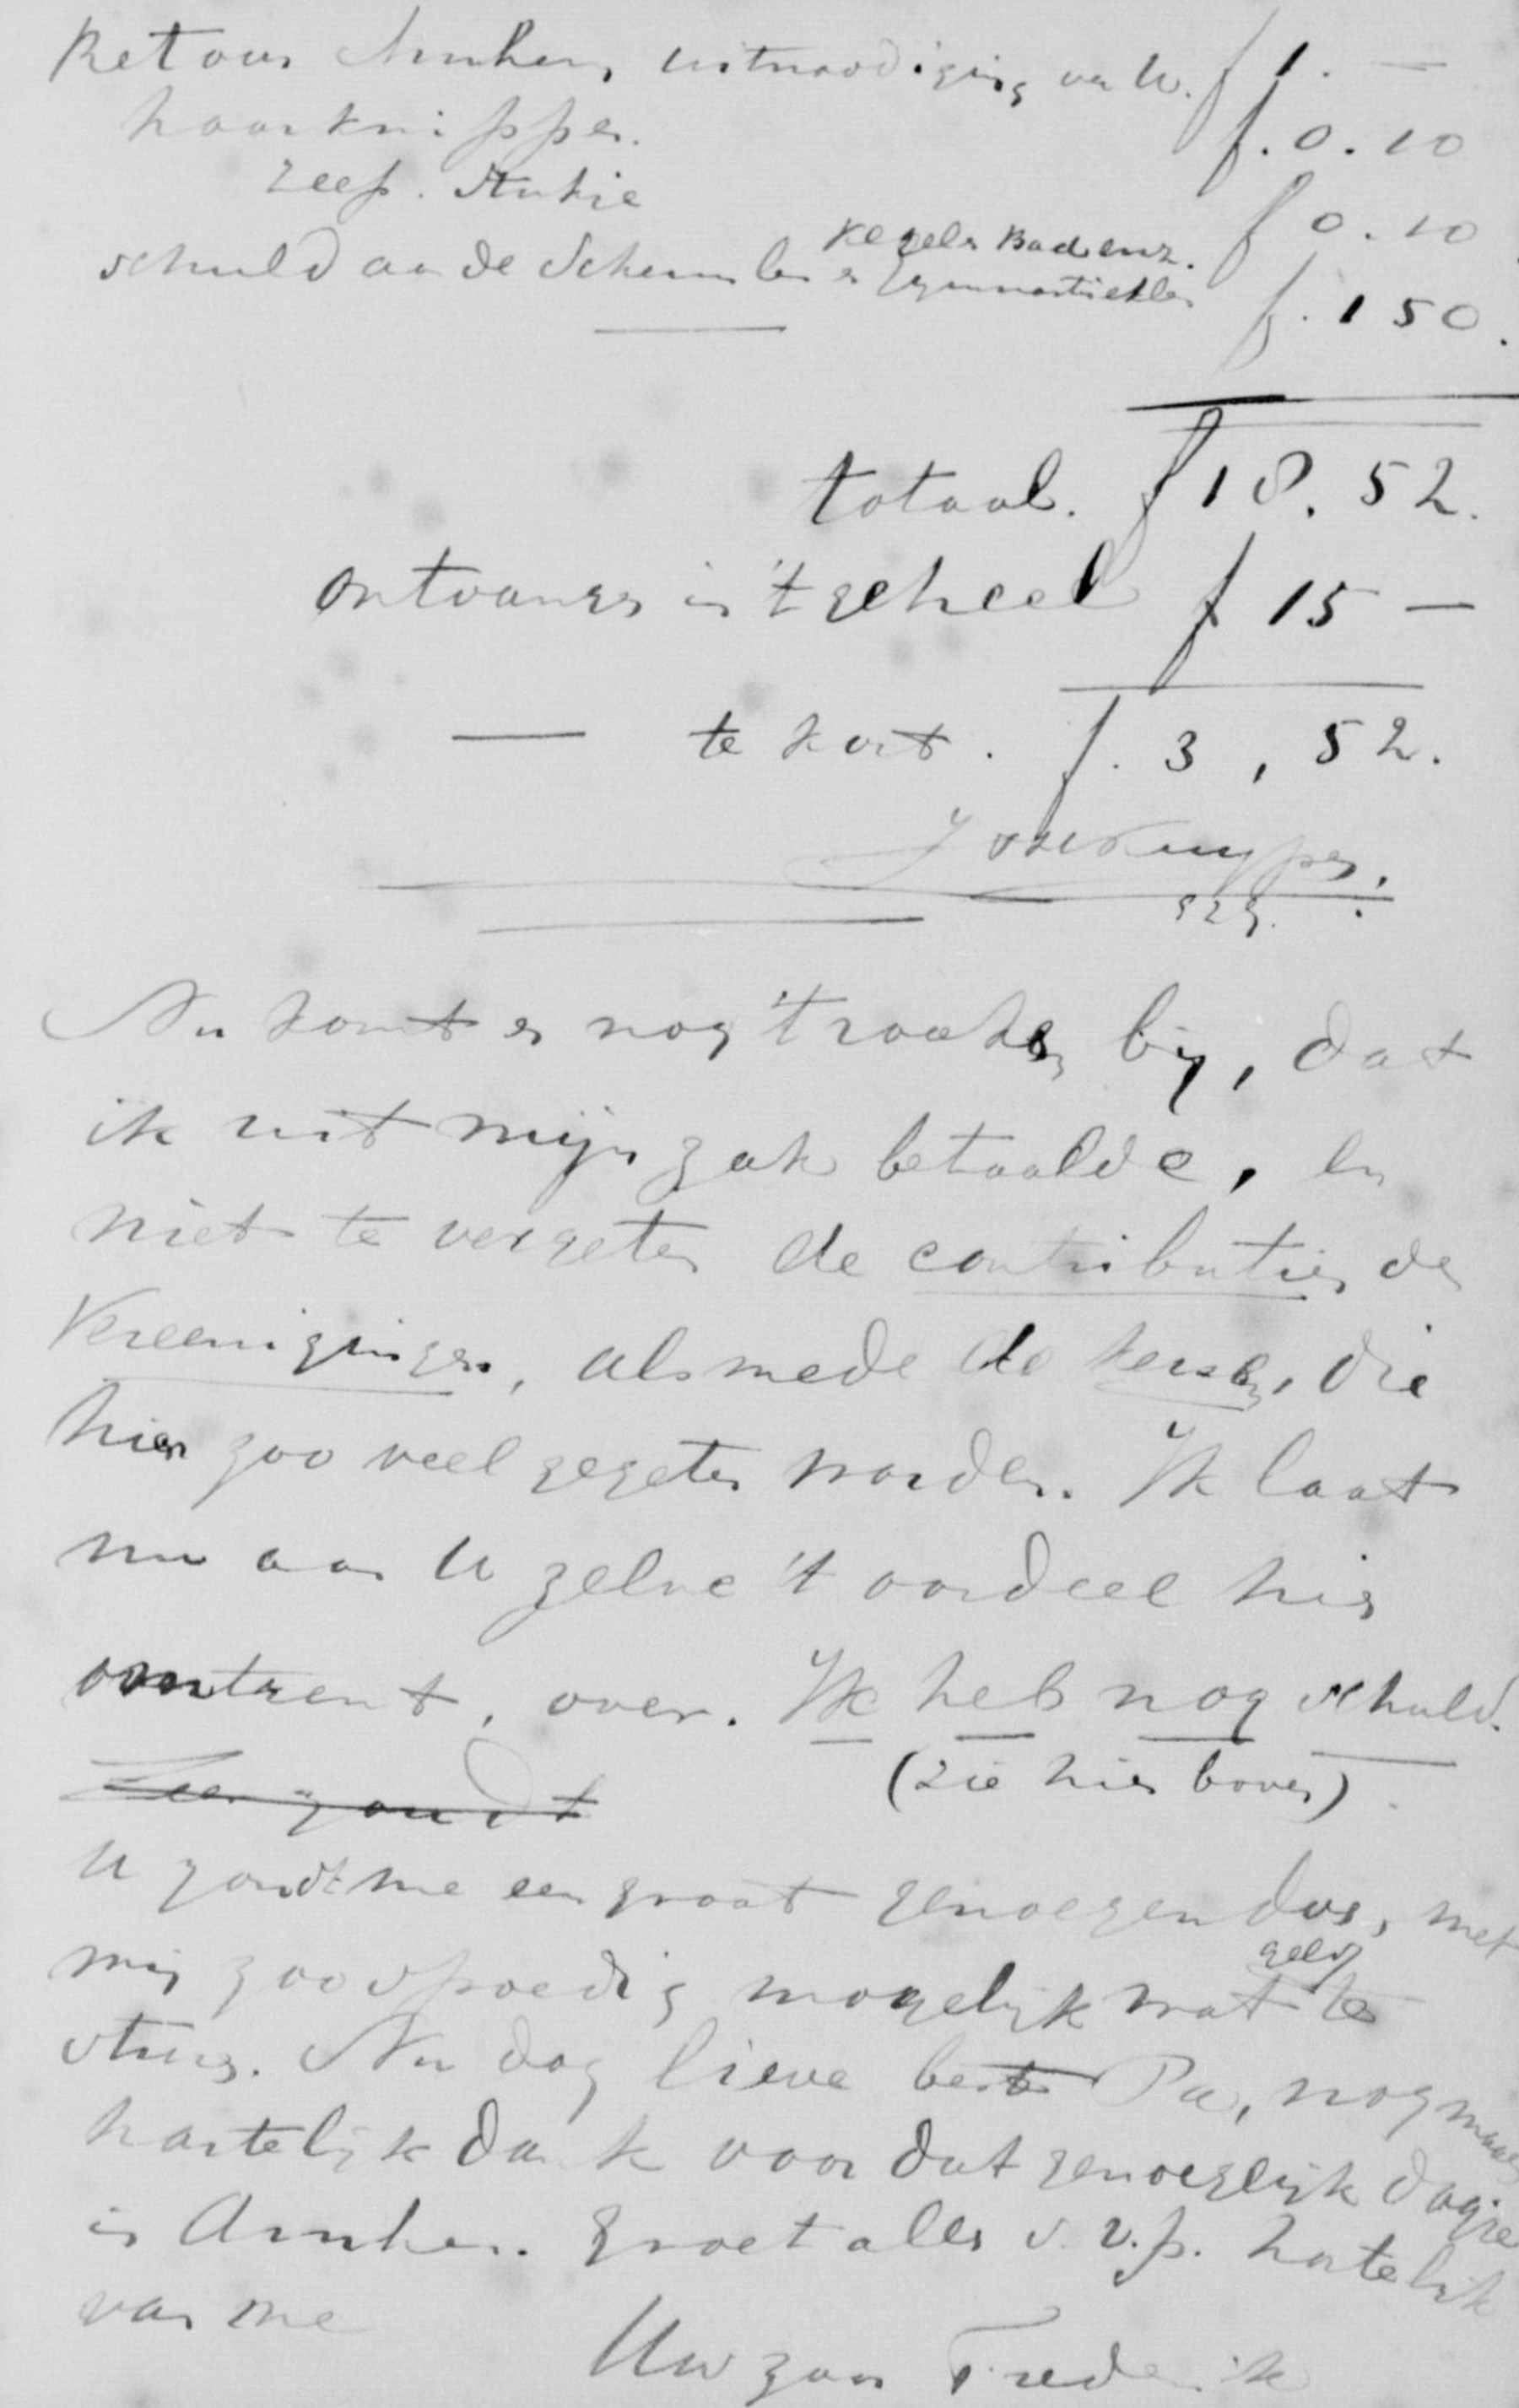 Retour Arnhem, uitnoodiging van U. f 1. —
haarknippen. f. 0.10
zeep. Stukje f 0.10
Kegelen Bad enz.
schuld aan de Schermles en Gymnastiekles f. 1 50.
totaal. f 18.52.
ontvangen in 't geheel f 15 —
— te kort. f. 3,52.
J H Kuyper.
Nu komt er nog 't rooken bij, dat
ik uit mijn zak betaalde, en
niet te vergeten de contributies der
Vereenigingen, alsmede de kersen, die
hier zoo veel gegeten worden. Ik laat
nu aan U zelve 't oordeel hier
omtrent, over. Ik heb nog schuld.
(zie hier boven).
U zoudt me een groot genoegen doen, met
geld
mij zoo spoedig mogelijk wat te
sturen. Nu dag lieve beste Pa, nogmaals
hartelijk dank voor dat genoegelijk dagje
in Arnhem. Groet allen s.v.p. hartelijk
van me
Uw zoon Frederik